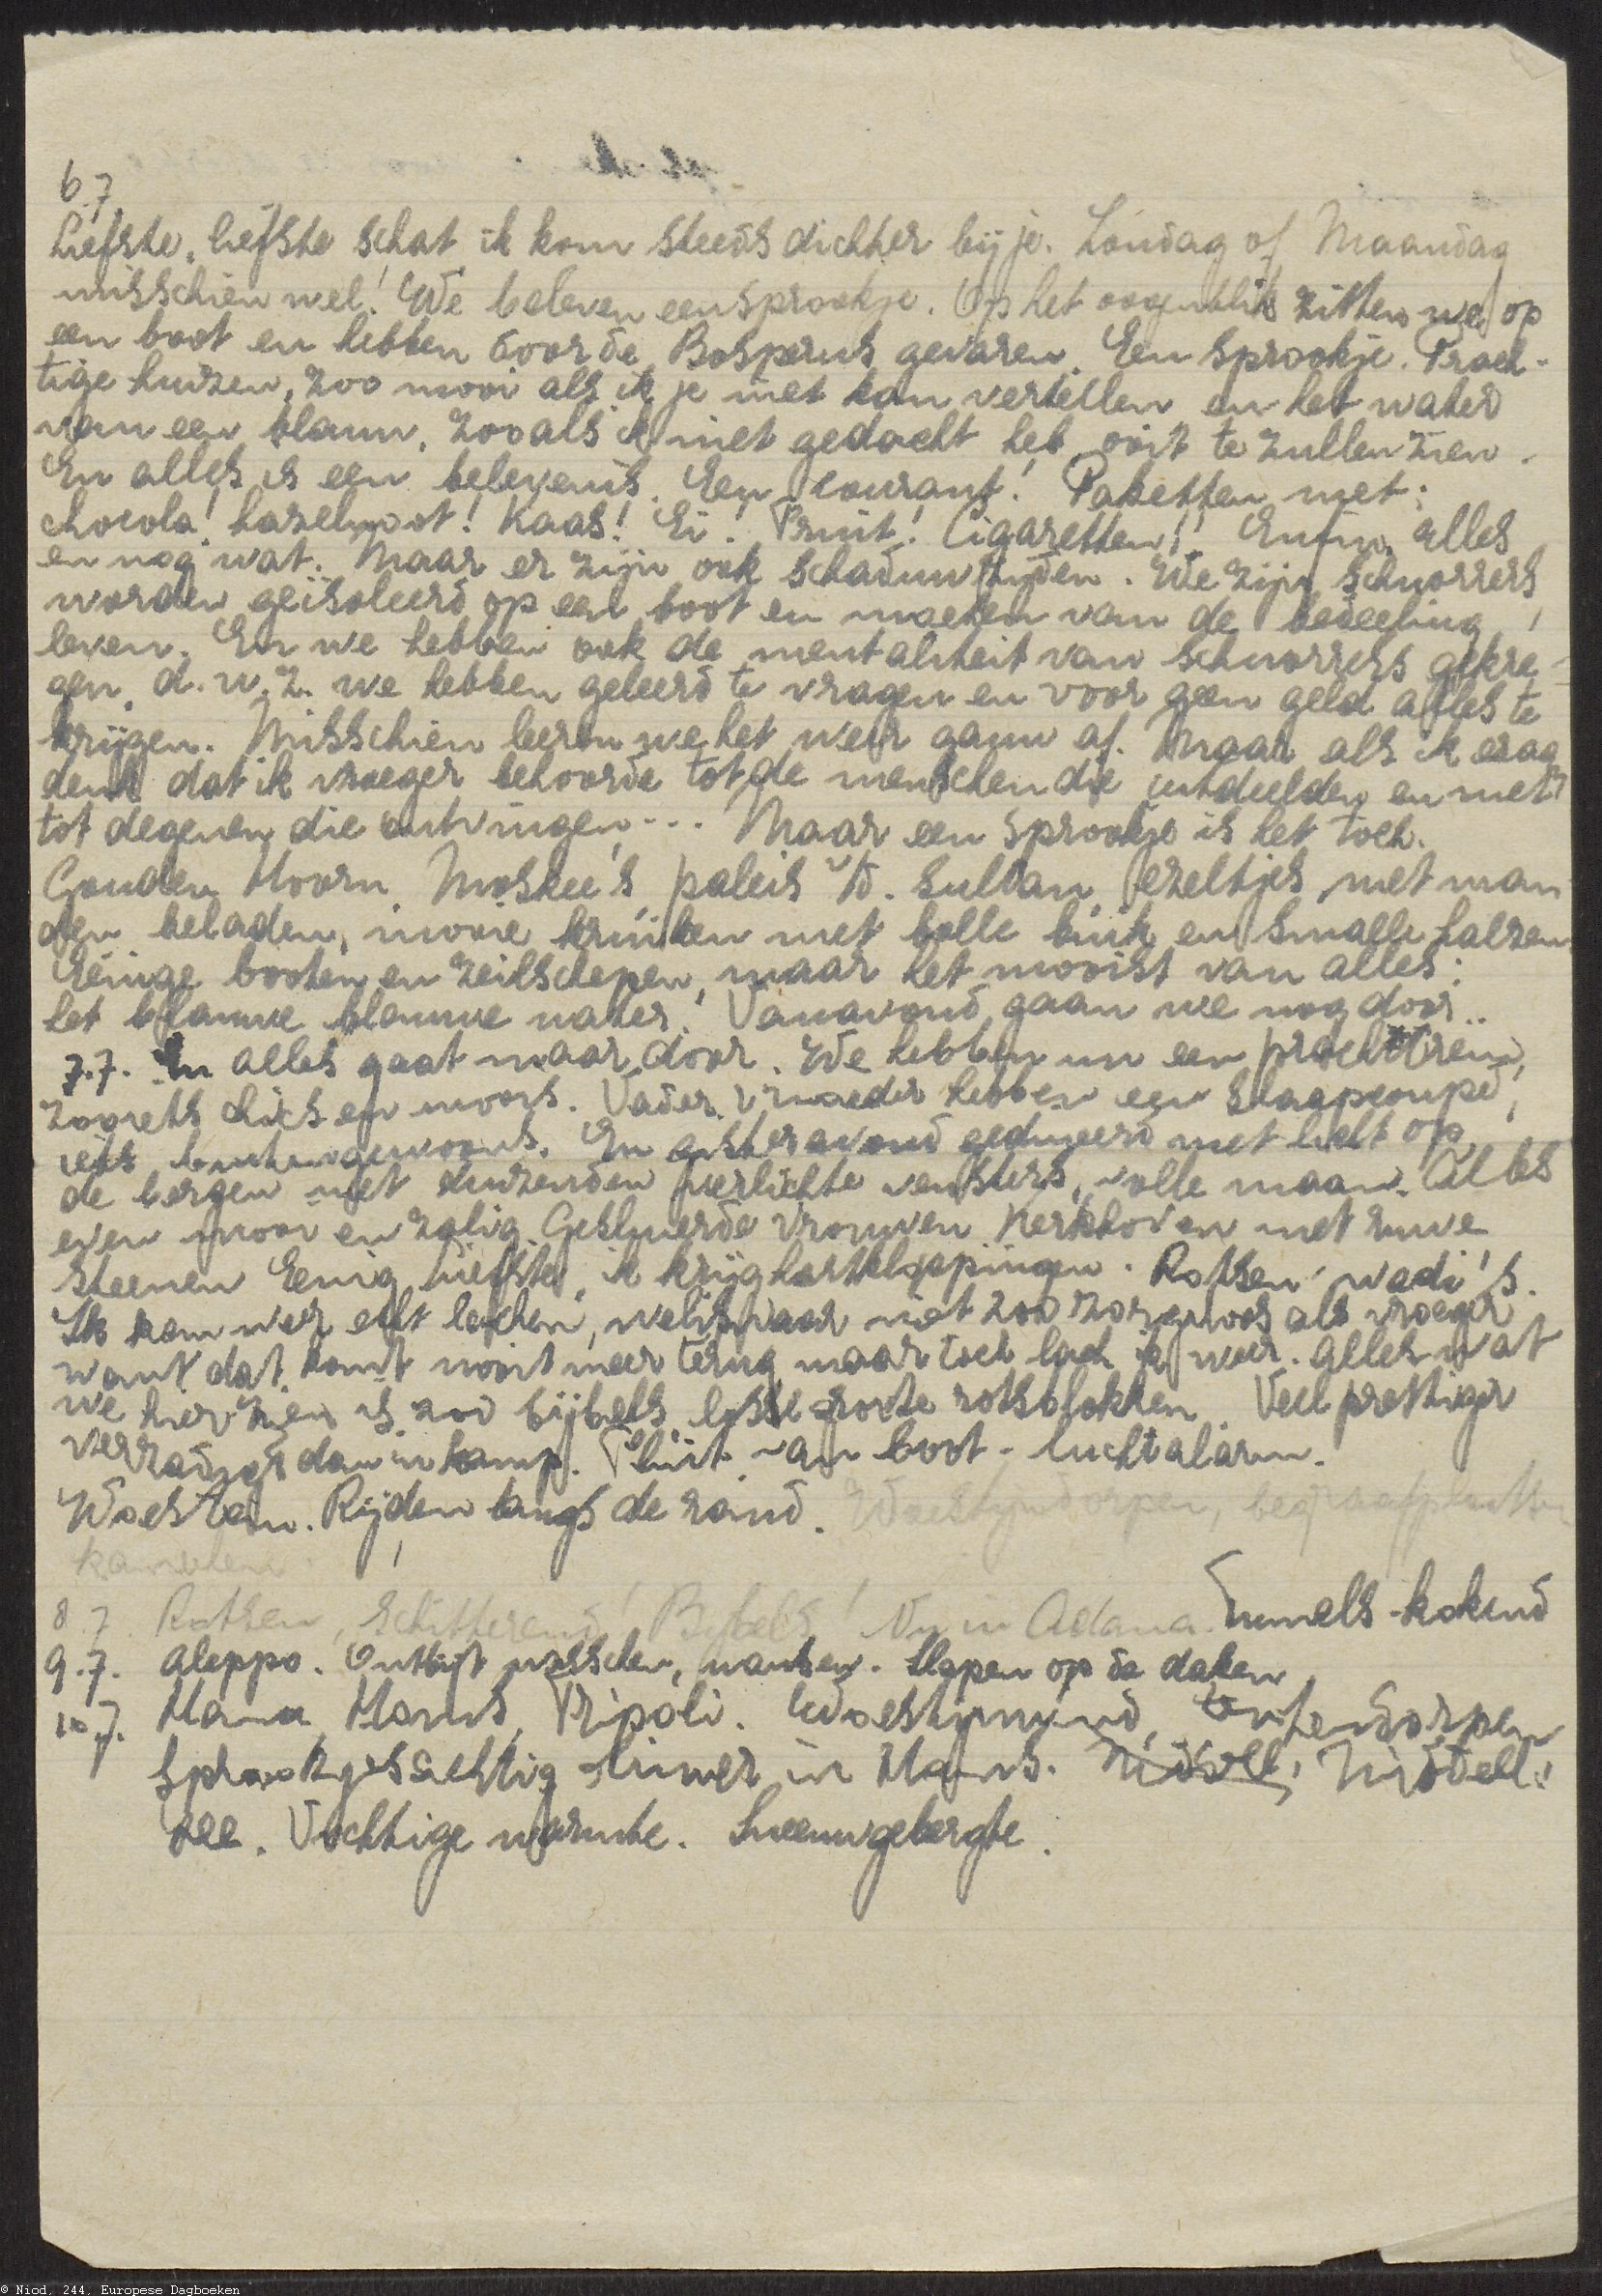 6.7
Liefste, liefste schat ik kom steeds dichter bij je. Zondag of Maandag
misschien wel! We beleven een sprookje. Op het oogenblik zitten we op
een boot en hebben door de Bosperus gevaren. Een sprookje. Prach-
tige huizen, zoo mooi als ik je niet kan vertellen en het water
van een blauw, zooals ik niet gedacht heb ooit te zullen zien.
En alles is een belevenis. Een courant! Paketten met:
chocola! hazelnoot! Kaas! Ei! Fruit! Cigaretten!! Enfin, alles
en nog wat. Maar er zijn ook schaduwzijden. We zijn schnorrers
worden geïsoleerd op een boot en moeten van de bedeeling
leven. En we hebben ook de mentaliteit van schnorrers gekre-
gen, d.w.z. we hebben geleerd te vragen en voor geen geld alles te
krijgen. Misschien leeren we het weer gauw af. Maar als ik eraan
denk dat ik vroeger behoorde tot de menschen die uitdeelden en niet
tot degenen die ontvingen... Maar een sprookje is het toch.
Gouden Hoorn, Moskee's, paleis v.d. Sultan, ezeltjes met man-
den beladen, mooie kruiken met bolle buik en smalle halzen
Eenige booten en zeilschepen, maar het mooist van alles:
het blauwe blauwe water. Vanavond gaan we nog door..
7.7. En alles gaat maar door. We hebben nu een prachttrein,
zooiets chics en moois. Vader, moeder hebben een slaapcoupé,
iets buitengewoons. En gisteravond gedineerd met licht op
de bergen met duizenden verlichte vensters, volle maan. Alles
even mooi en zalig. Gesluierde vrouwen. Kerkhoven met ruwe
steenen. Eenig, liefste, ik krijg hartkloppingen. Rotsen, wadi's.
Ik kan weer echt lachen, weliswaar niet zoo zorgeloos als vroeger
want dat komt nooit meer terug maar toch lach ik weer. Alles wat
we hier zien is zoo bijbels, losse groote rotsblokken. Veel prettiger
dan in kamp. Fluit van boot - luchtalarm.
Woestein. Rijden langs de rand. Woestijndorpen, begraafplaatsen
kameelen
8.7 Rotsen, Schitterend! Bijbels! Nu in Adana. Tunnels - kokend
9.7. Aleppo. Ontbijt wasschen, wantsen. Slapen op de daken
10.7. Hama, Homs, Tripoli. Woestijnwind, tentendorpen
Sprookjesachtig in Homs. Middell.
zee. Vochtige warmte. Sneeuwgebergte.
© Niod, 244, Europese Dagboeken